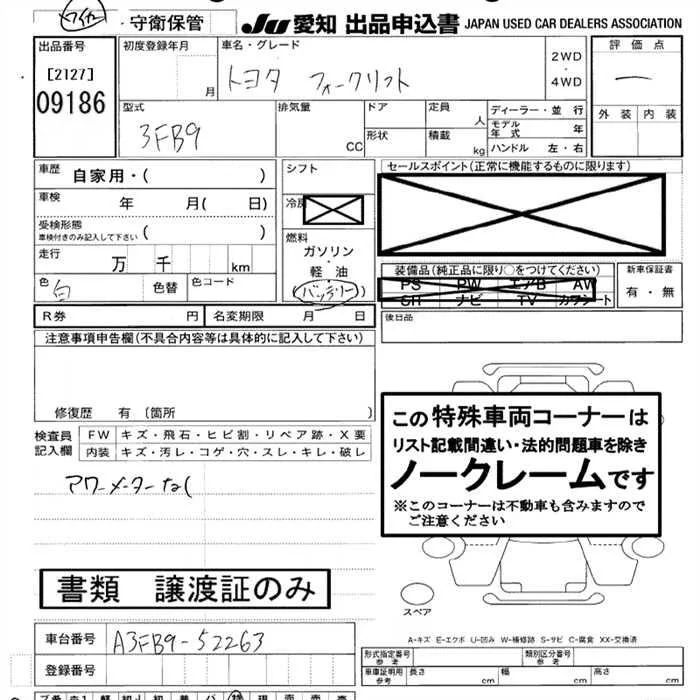 ワイカー 守衛保管 JU 愛知 出品申込書 JAPAN USED CAR DEALERS ASSOCIATION
出品番号 初度登録年月 車名・グレード 評価点
[2127] 月 トヨタ フォークリフト 2WD・4WD
09186 一
型式 排気量 ドア 定員 人 ディーラー・並行 外装 内装
3FB9 モデル年式 年
CC 形状 積載 kg ハンドル 左・右
車歴 自家用・( ) シフト セールスポイント(正常に機能するものに限ります)
車検 年 月( 日) 冷房
受検形態 車検付きのみ記入して下さい ( ) 燃料
ガソリン
走行 万 千 km 軽・油 装備品(純正品に限り○をつけてください) 新車保証書
色 白 色替 色コード (バッテリー) PS PW エアB AW 有・無
SR ナビ TV カワシート
R券 円 名変期限 月 日 後日品
注意事項申告欄(不具合内容等は具体的に記入して下さい)
修復歴 有 〔箇所 〕
この特殊車両コーナーは
リスト記載間違い・法的問題車を除き
ノークレームです
※このコーナーは不動車も含みますので
ご注意ください
検査員記入欄 FW キズ・飛石・ヒビ割・リペア跡・X要
内装 キズ・汚レ・コゲ・穴・スレ・キレ・破レ
アワーメーターなし
書類 譲渡証のみ
スペア
A-キズ E-エクボ U-凹み W-補修跡 S-サビ C-腐食 XX-交換済
車台番号 A3FB9-52263
形式指定番号 参考 類別区分番号 参考
登録番号 車庫証明用 参考 長さ cm 幅 cm 高さ cm